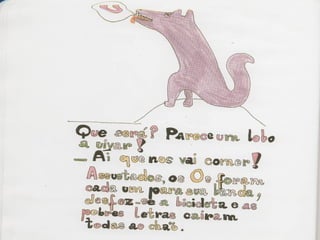 Que será? Parece um lobo
a uivar!
— Ai que nos vai comer!
Assustados, os Os foram
cada um para sua banda,
desfez-se a bicicleta e as
pobres letras caíram
todas ao chão.